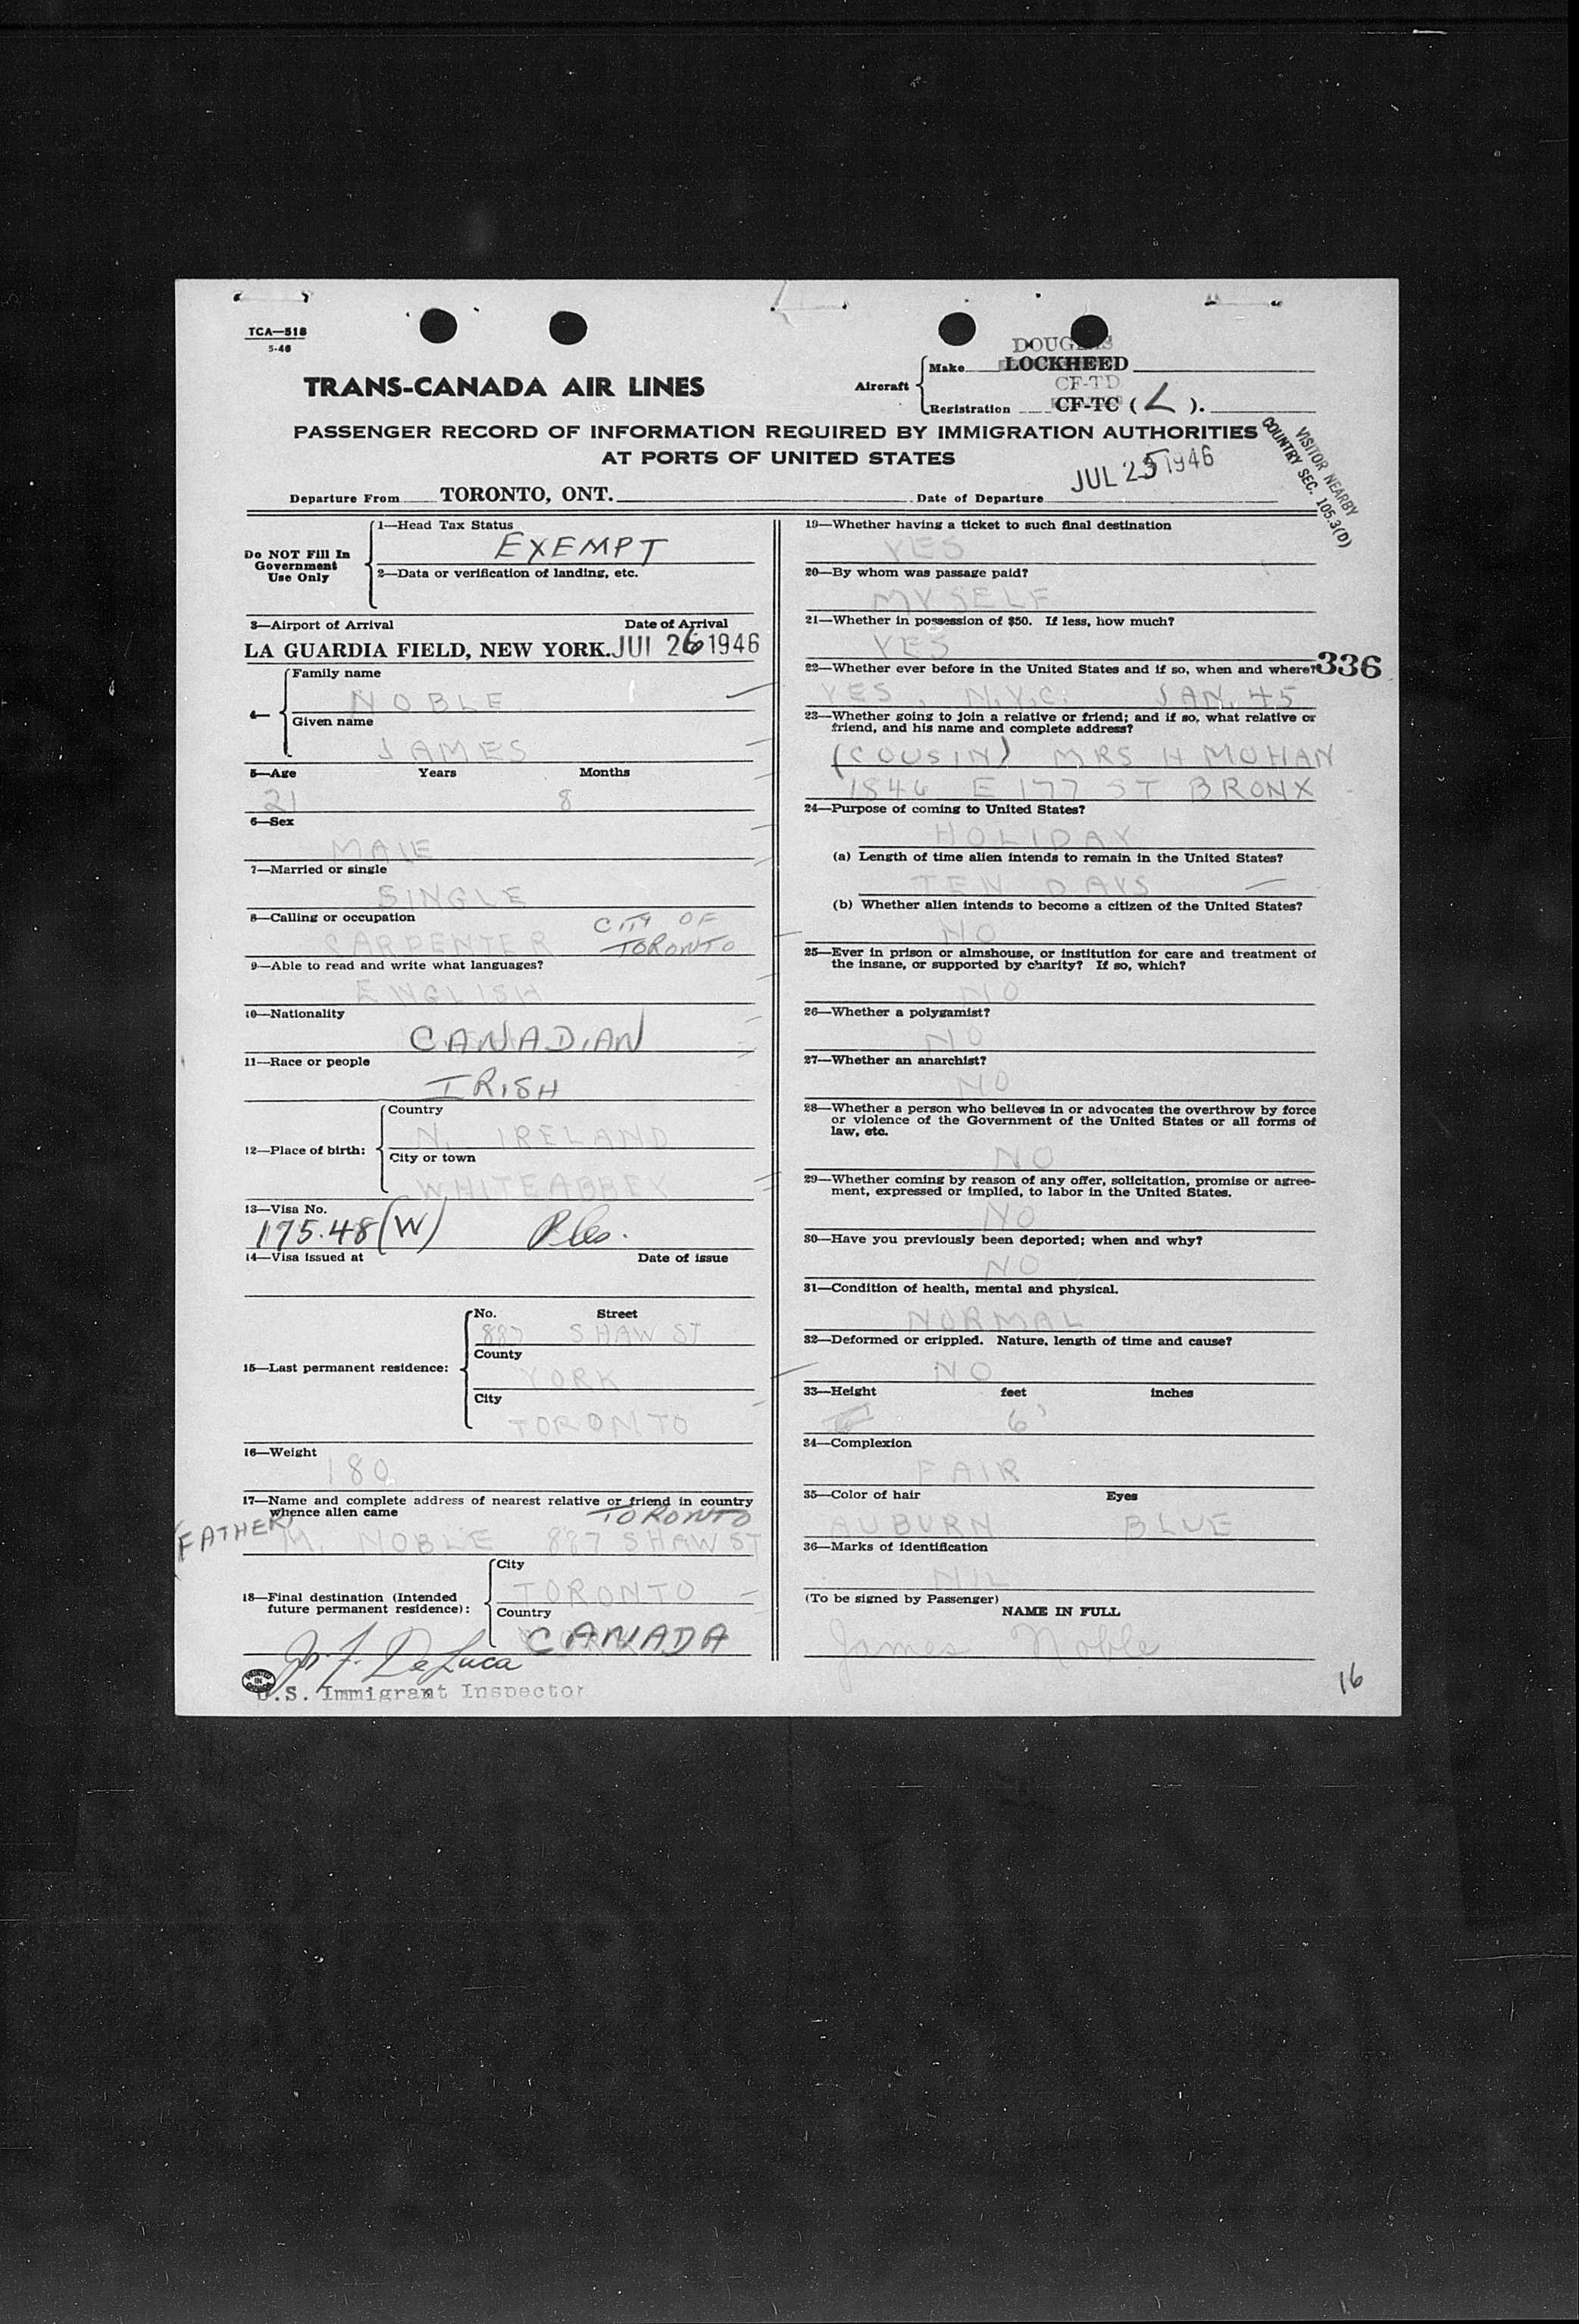 TCA—518
5-46
TRANS-CANADA AIR LINES
DOUGLAS
Aircraft
Make LOCKHEED
CF-TD
Registration CF-TC (L).
PASSENGER RECORD OF INFORMATION REQUIRED BY IMMIGRATION AUTHORITIES
AT PORTS OF UNITED STATES
VISITOR NEARBY
COUNTRY SEC. 105.3(D)
Departure From TORONTO, ONT. Date of Departure JUL 25 1946
Do NOT Fill In
Government
Use Only
1—Head Tax Status
EXEMPT
2—Data or verification of landing, etc.
3—Airport of Arrival Date of Arrival
LA GUARDIA FIELD, NEW YORK. JUL 26 1946
4—
Family name
NOBLE
Given name
JAMES
5—Age Years Months
21 8
6—Sex
MALE
7—Married or single
SINGLE
8—Calling or occupation
CARPENTER CITY OF
TORONTO
9—Able to read and write what languages?
ENGLISH
10—Nationality
CANADIAN
11—Race or people
IRISH
12—Place of birth:
Country
N. IRELAND
City or town
WHITEABBEY
13—Visa No.
175.48 (W)
14—Visa issued at Date of issue
15—Last permanent residence:
No. Street
887 SHAW ST
County
YORK
City
TORONTO
16—Weight
180
17—Name and complete address of nearest relative or friend in country
whence alien came TORONTO
(FATHER) M. NOBLE 887 SHAW ST
18—Final destination (Intended
future permanent residence):
City
TORONTO
Country
CANADA
Jos. F. DeLuca
U.S. Immigrant Inspector
PRINTED IN CANADA
19—Whether having a ticket to such final destination
YES
20—By whom was passage paid?
MYSELF
21—Whether in possession of $50. If less, how much?
YES
22—Whether ever before in the United States and if so, when and where?
336
YES, N.Y.C. JAN. 45
23—Whether going to join a relative or friend; and if so, what relative or
friend, and his name and complete address?
(COUSIN) MRS H MOHAN
1846 E 177 ST BRONX
24—Purpose of coming to United States?
HOLIDAY
(a) Length of time alien intends to remain in the United States?
TEN DAYS
(b) Whether alien intends to become a citizen of the United States?
NO
25—Ever in prison or almshouse, or institution for care and treatment of
the insane, or supported by charity? If so, which?
NO
26—Whether a polygamist?
NO
27—Whether an anarchist?
NO
28—Whether a person who believes in or advocates the overthrow by force
or violence of the Government of the United States or all forms of
law, etc.
NO
29—Whether coming by reason of any offer, solicitation, promise or agree-
ment, expressed or implied, to labor in the United States.
NO
30—Have you previously been deported; when and why?
NO
31—Condition of health, mental and physical.
NORMAL
32—Deformed or crippled. Nature, length of time and cause?
NO
33—Height feet inches
6'
34—Complexion
FAIR
35—Color of hair Eyes
AUBURN BLUE
36—Marks of identification
NIL
(To be signed by Passenger)
NAME IN FULL
James Noble
16